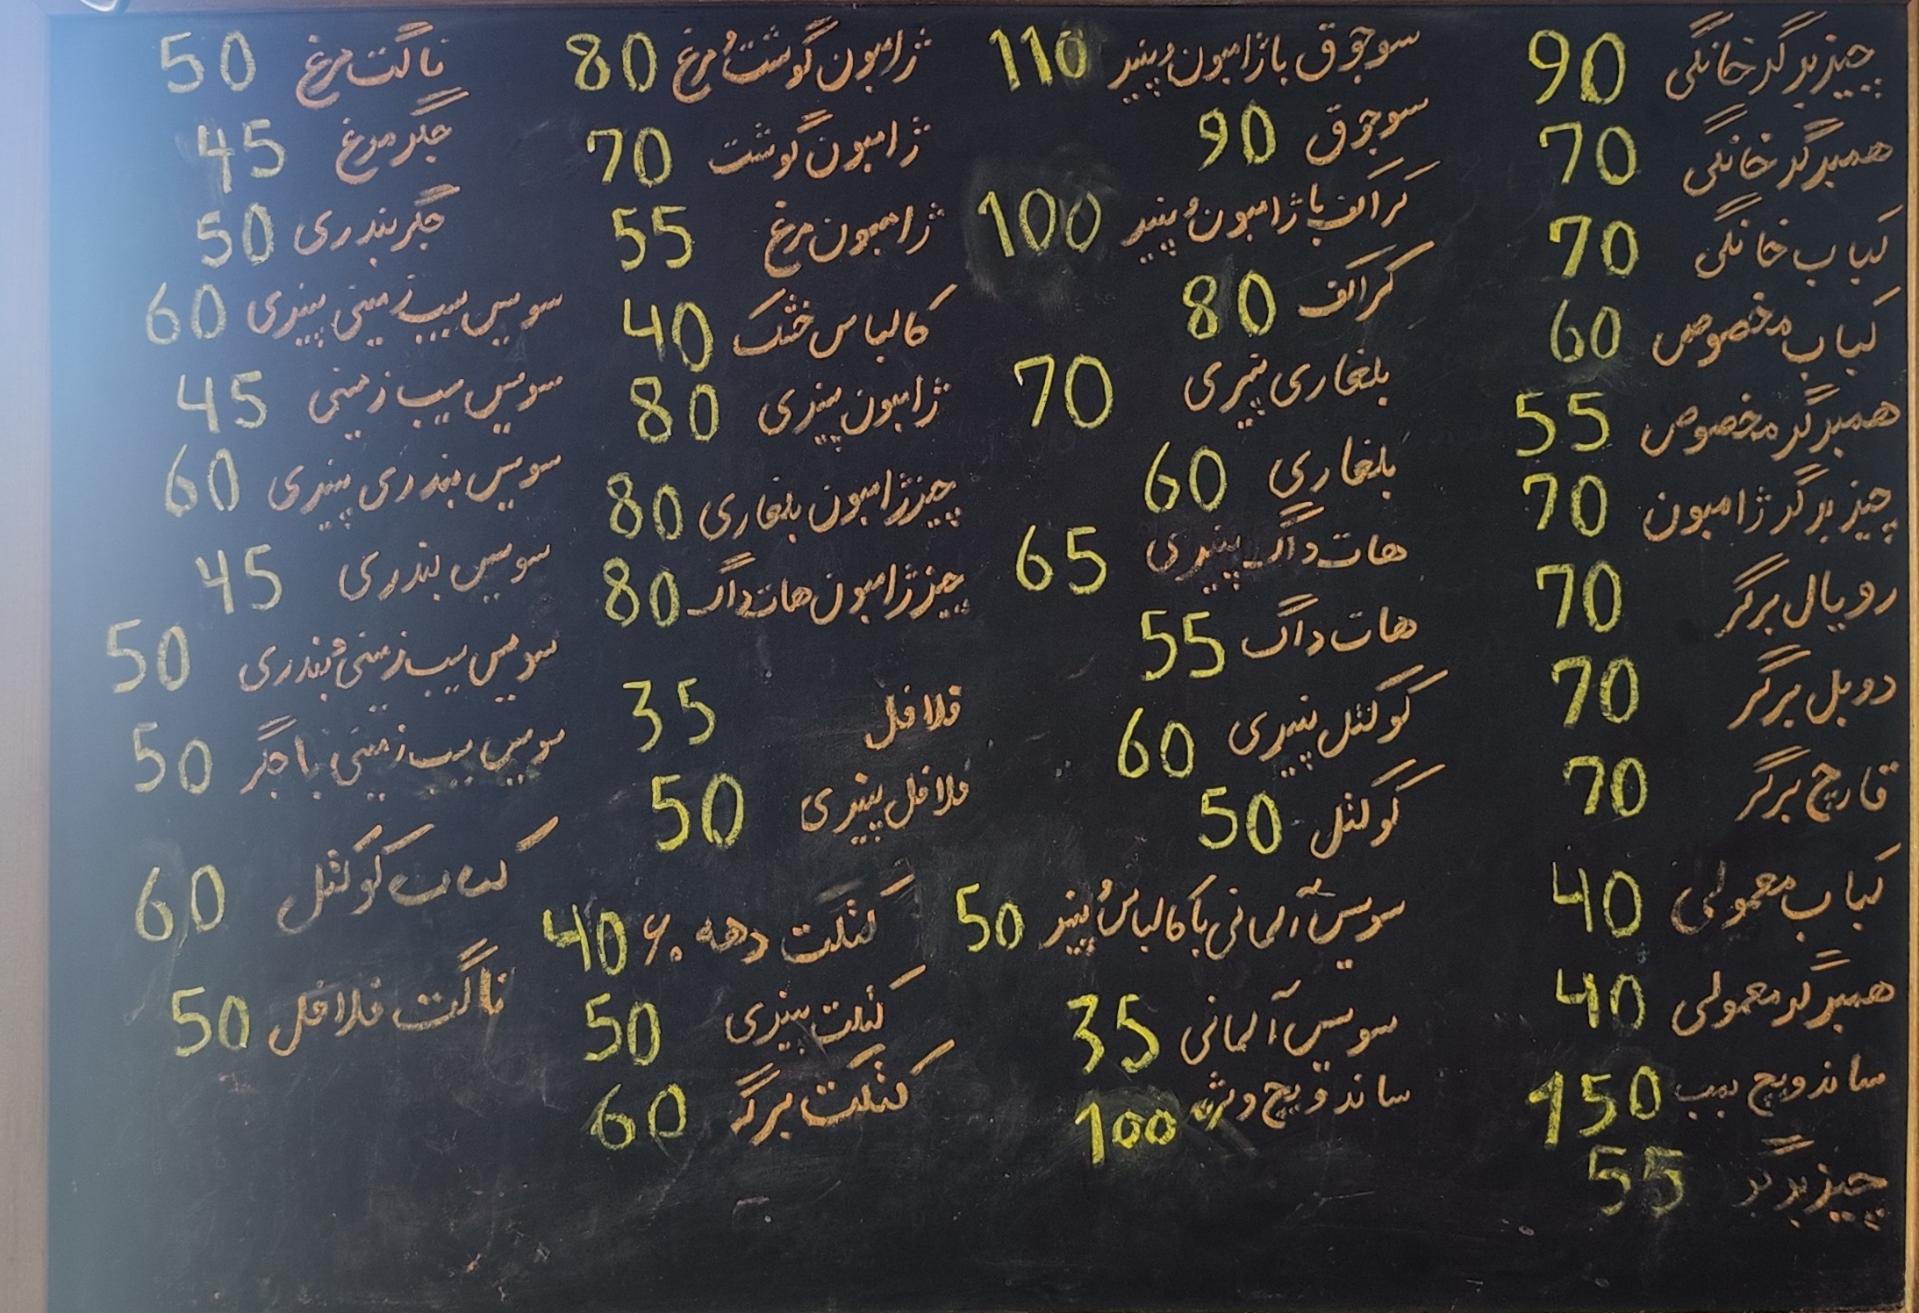 چیزبرگر خانگی 90
همبرگر خانگی 70
کباب خانگی 70
کباب مخصوص 60
همبرگر مخصوص 55
چیز برگر ژامبون 70
رویال برگر 70
دوبل برگر 70
قارچ برگر 70
کباب معمولی 40
همبرگر معمولی 40
ساندویچ بمب 150
چیز برگر 55
سوجوق با ژامبون و پنیر 110
سوجوق 90
کراکف با ژامبون و پنیر 100
کراکف 80
بلغاری پنیری 70
بلغاری 60
هات داگ پنیری 65
هات داگ 55
کوکتل پنیری 60
کوکتل 50
سوسیس آلمانی با کالباس و پنیر 50
سوسیس آلمانی 35
ساندویچ ویژه 100
ژامبون گوشت و مرغ 80
ژامبون گوشت 70
ژامبون مرغ 55
کالباس خشک 40
ژامبون پنیری 80
چیز ژامبون بلغاری 80
چیز ژامبون هات داگ 80
فلافل 35
فلافل پنیری 50
کتلت دهه ۶۰ 40
کتلت پنیری 50
کتلت برگر 60
ناگت مرغ 50
جگر مرغ 45
جگر بندری 50
سوسیس سیب زمینی پنیری 60
سوسیس سیب زمینی 45
سوسیس بندری پنیری 60
سوسیس بندری 45
سوسیس سیب زمینی و بندری 50
سوسیس سیب زمینی با جگر 50
کباب کوکتل 60
ناگت فلافل 50